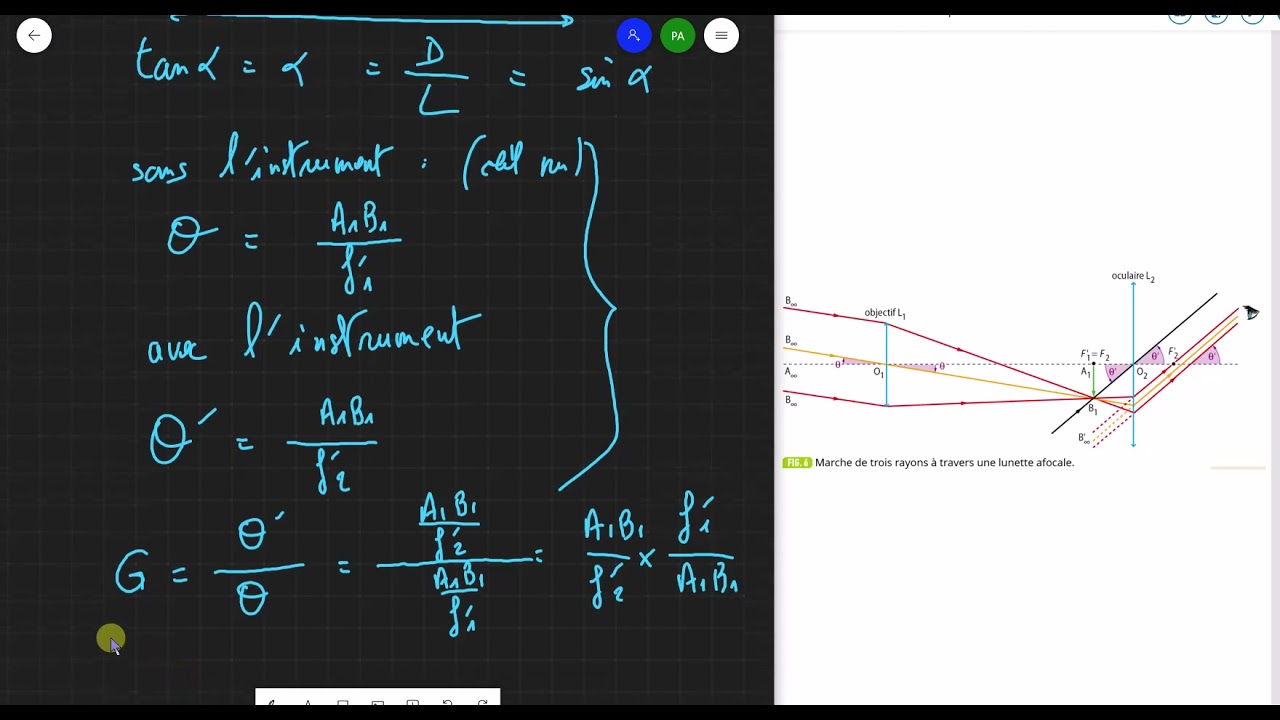 PA
tan α = α = D/L = sin α
sans l'instrument : (œil nu)
θ = A₁B₁/f'₁
avec l'instrument
θ' = A₁B₁/f'₂
G = θ'/θ = (A₁B₁/f'₂)/(A₁B₁/f'₁) = A₁B₁/f'₂ × f'₁/A₁B₁
oculaire L₂
B∞
objectif L₁
B∞
F'₁ = F₂
F'₂
θ
θ
θ'
θ'
θ'
A∞
O₁
A₁
O₂
B∞
B₁
B'∞
FIG. 6 Marche de trois rayons à travers une lunette afocale.